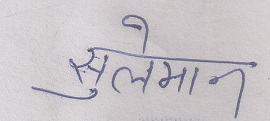 सुलेमान